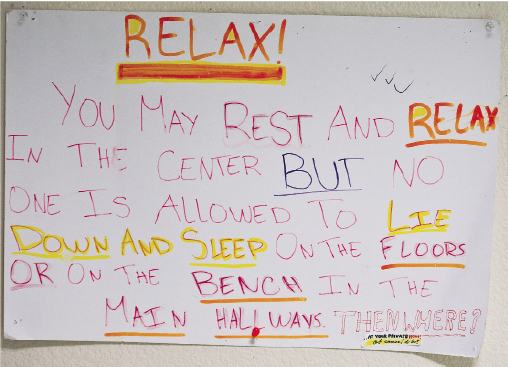 RELAX!
YOU MAY REST AND RELAX
IN THE CENTER BUT NO
ONE IS ALLOWED TO LIE
DOWN AND SLEEP ON THE FLOORS
OR ON THE BENCH IN THE
MAIN HALLWAYS. THEN WHERE?
AT YOUR PRIVATE